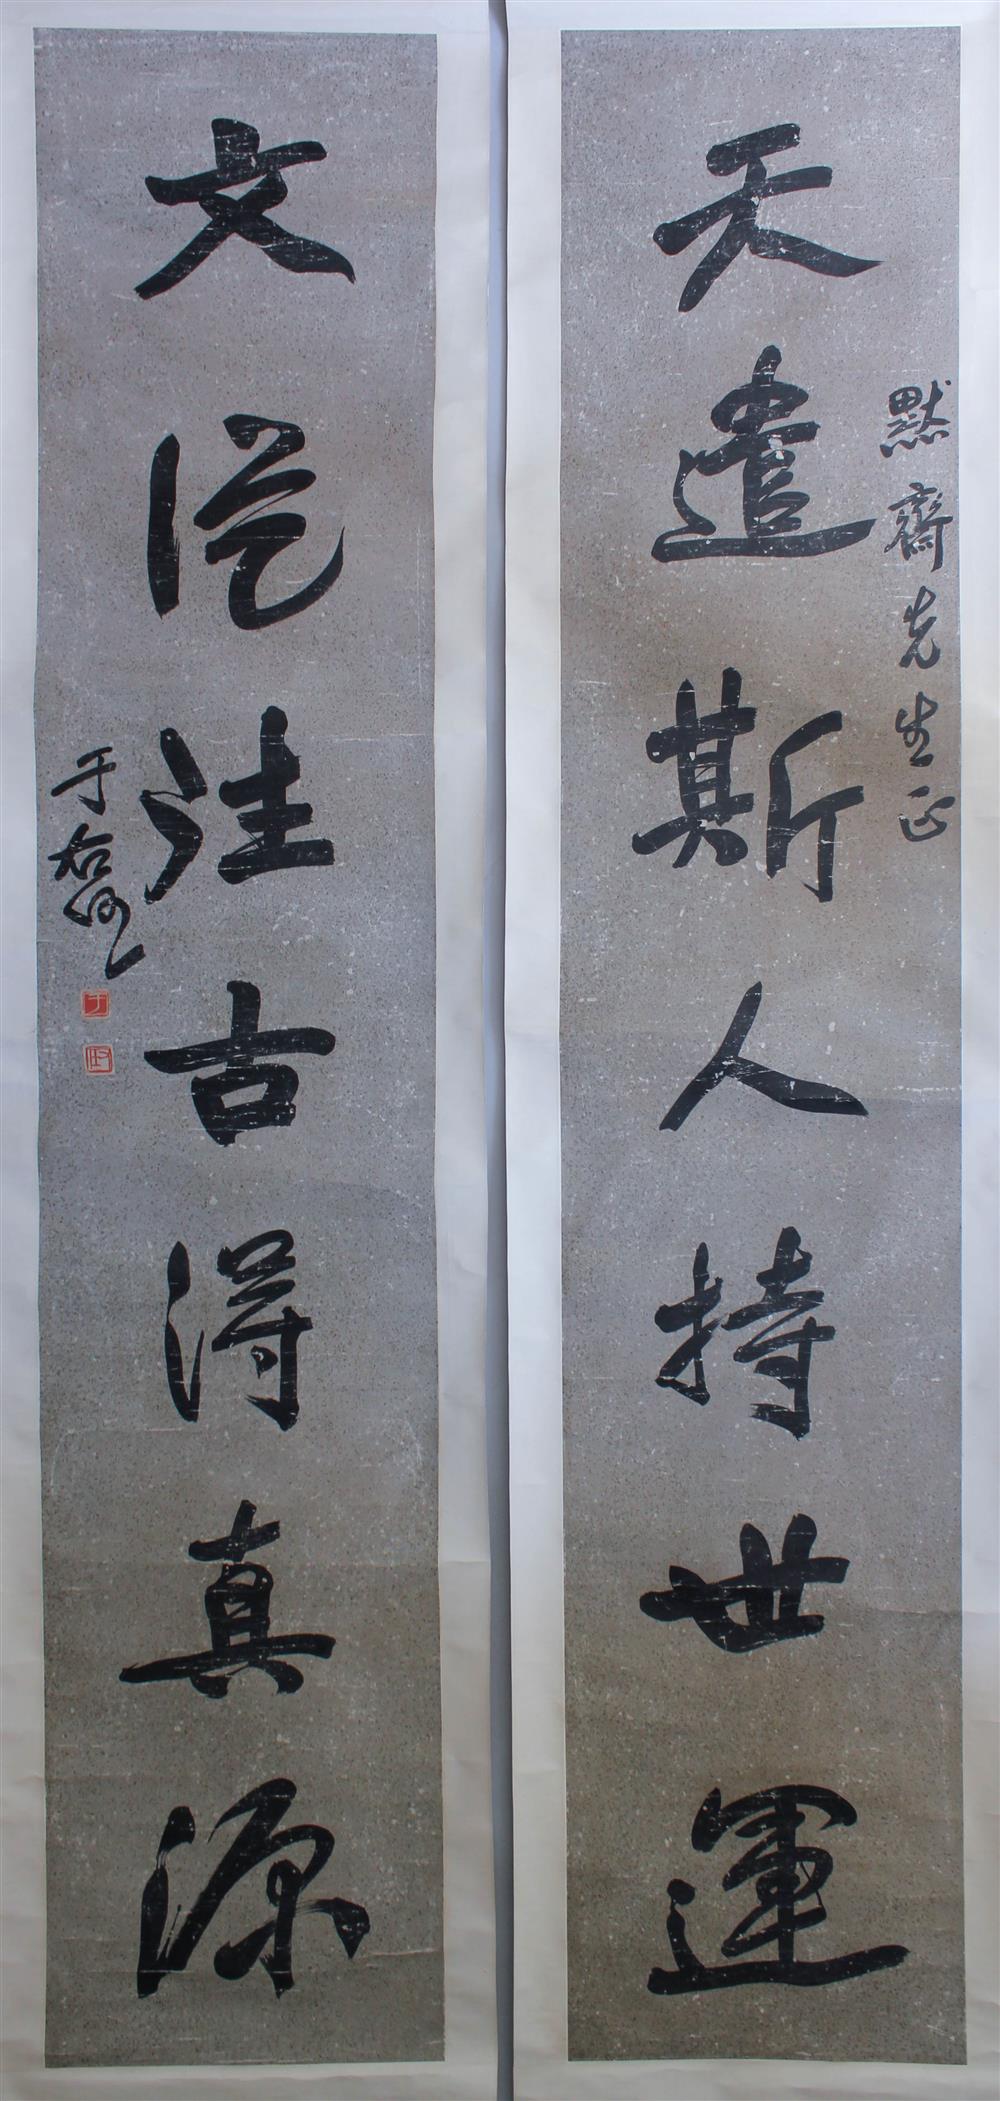 天遣斯人持世運
默齋先生正
文從往古得真源
于右任